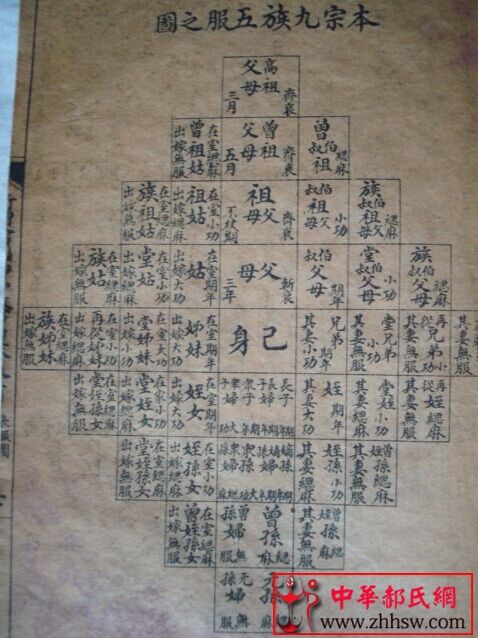 本宗九族五服之圖
高祖父母 齊衰 三月
曾伯叔祖 緦麻
曾祖父母 齊衰 五月
在室緦麻 曾祖姑 出嫁無服
族伯叔祖父母 緦麻
伯叔祖父母 小功
祖父母 齊衰 不杖期
在室小功 祖姑 出嫁緦麻
在室緦麻 族祖姑 出嫁無服
族伯叔父母 緦麻
堂伯叔父母 小功
伯叔父母 期年
父母 斬衰 三年
在室期年 姑 出嫁大功
在室小功 堂姑 出嫁緦麻
在室緦麻 族姑 出嫁無服
其妻無服
再從兄弟 小功 其妻無服
堂兄弟 小功 其妻緦麻
兄弟 期年 其妻小功
己身
在室期年 姊妹 出嫁大功
在室大功 堂姊妹 出嫁小功
在室小功 再從姊妹 出嫁緦麻
在室緦麻 族姊妹 出嫁無服
再從姪 緦麻 其妻無服
堂姪 小功 其妻緦麻
姪 期年 其妻大功
長子期年 長子婦期年 衆子期年 衆子婦大功
在室期年 姪女 出嫁大功
堂姪女 出嫁緦麻
在室緦麻 堂姪孫女 出嫁無服
曾姪孫 緦麻 其妻無服
姪孫 小功 其妻緦麻
嫡孫期年 嫡孫婦小功 衆孫大功 衆孫婦緦麻
在室小功 姪孫女 出嫁緦麻
在室緦麻 堂姪孫女 出嫁無服
曾姪孫 緦麻 其妻無服
曾孫 緦麻
曾孫婦 無服
在室緦麻 曾姪孫女 出嫁無服
元孫 緦麻
元孫婦 無服
中華郝氏網
www.zhhsw.com